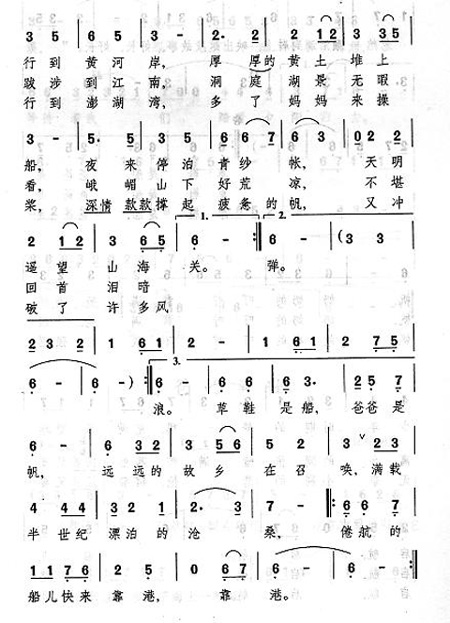 3 5 | 6 5 | 3 - | 2· 3 | 2 1 2 | 3 3 5 |
行到 黄河 岸, 厚厚的 黄土 堆上
跋涉 到江 南, 洞庭 湖景 无暇
行到 澎湖 湾, 多了 妈妈 来操
3 - | 5· 5 | 3 5 | 6 6 7 | 6 3 | 0 2 2 |
船, 夜来 停泊 青纱 帐, 天明
看, 峨嵋 山下 好荒 凉, 不堪
桨, 深情 款款 撑起 疲惫的 帆, 又冲
1. 2.
2 1 2 | 3 6 5 | 6 - :| 6 - | (3 3
遥望 山海 关。 弹。
回首 泪暗
破了 许多 风
2 3 2 | 1 6 1 | 2 - | 1 6 1 | 2 7 5 |
3.
6 - | 6 -) :| 6 - | 6 6 | 6 3· | 2 5 7 |
浪。 草鞋 是船, 爸爸是
6 - | 6 3 2 | 3 5 6 | 5 2 | 3 ∨ 2 3 |
帆, 远远的 故乡 在召 唤,满载
4 4 4 | 3 2 2 | 2· 3 | 7 - |: 6 6 7 |
半世纪 漂泊的 沧 桑, 倦航的
1 1 7 6 | 2 5 | 0 6 7 | 6 - | 6 - :|
船儿快来 靠港, 靠 港。